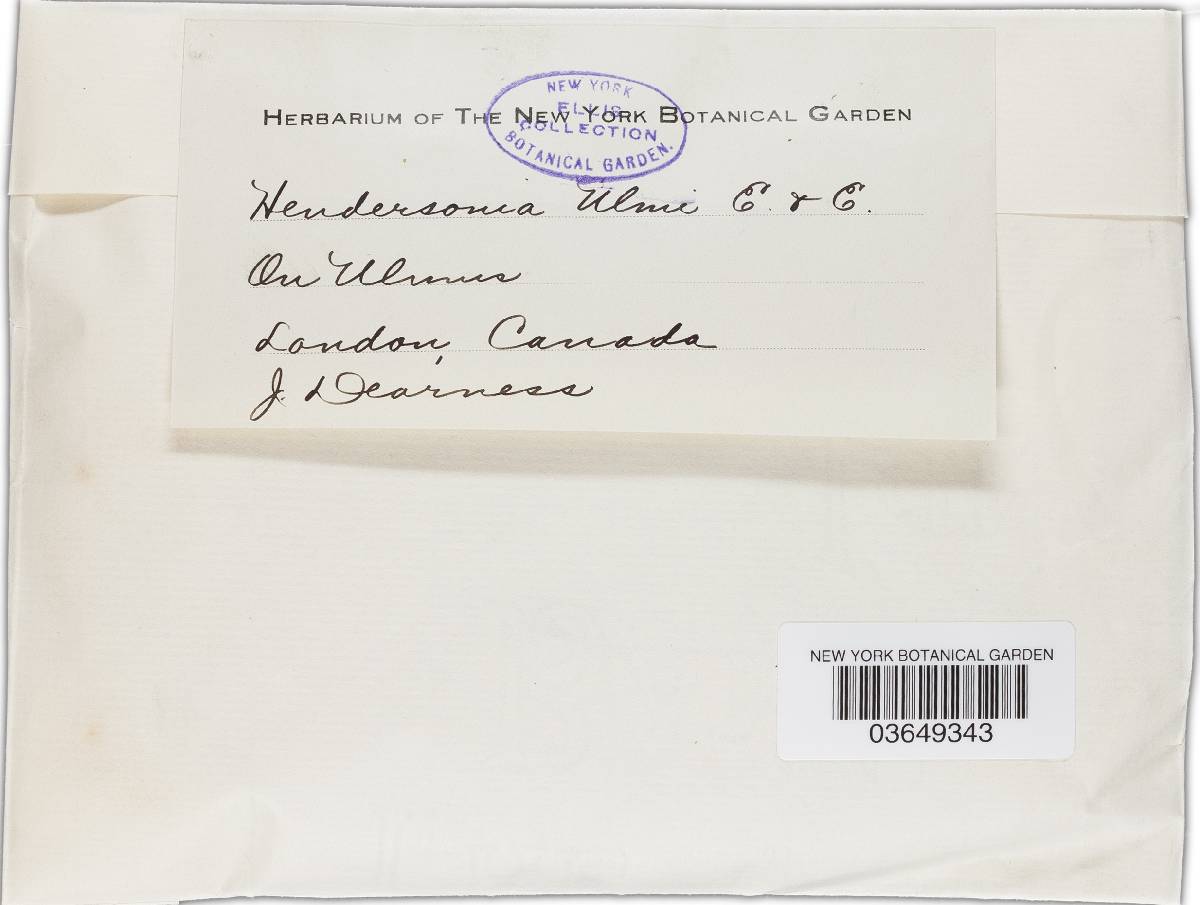 NEW YORK
ELLIS
COLLECTION
BOTANICAL GARDEN.
HERBARIUM OF THE NEW YORK BOTANICAL GARDEN
Hendersonia Ulmi E. & E.
On Ulmus
London, Canada
J. Dearness
NEW YORK BOTANICAL GARDEN
03649343